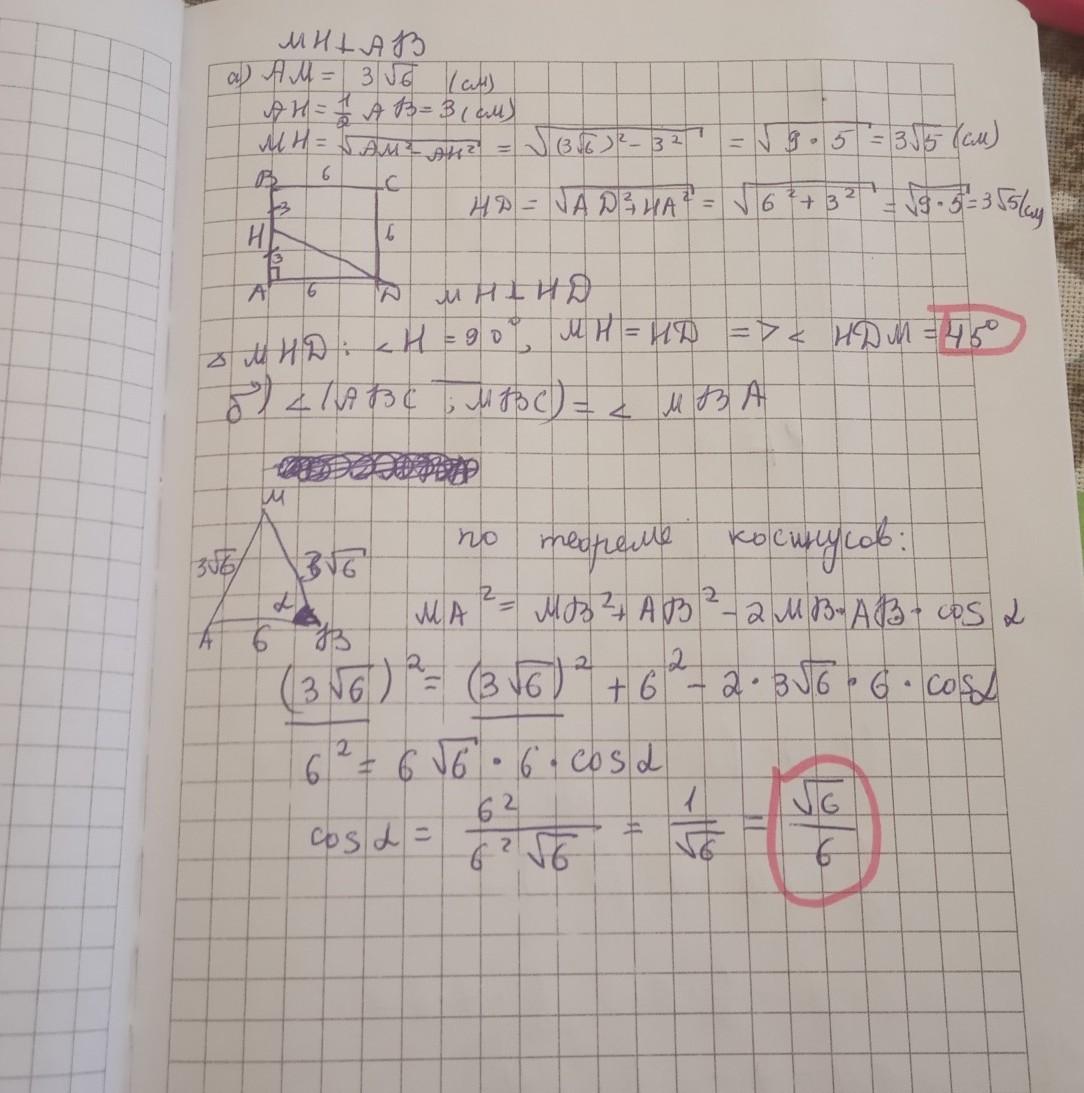 MH⊥AB
а) AM = 3√6 (см)
AH = 1/2 AB = 3 (см)
MH = √AM² - AH² = √(3√6)² - 3² = √9 · 5 = 3√5 (см)
B 6 C
3
H 6
3
A 6 D
HD = √AD² + HA² = √6² + 3² = √9·5 = 3√5 (см)
MH⊥HD
△ MHD: <H = 90°, MH = HD => < HDM = 45°
б) <(ABC ; MBC) = < MBA
M
3√6 3√6
α
A 6 B
по теореме косинусов:
MA² = MB² + AB² - 2MB·AB·cos α
(3√6)² = (3√6)² + 6² - 2 · 3√6 · 6 · cosα
6² = 6√6 · 6 · cosα
cosα = 6²/6²√6 = 1/√6 = √6/6